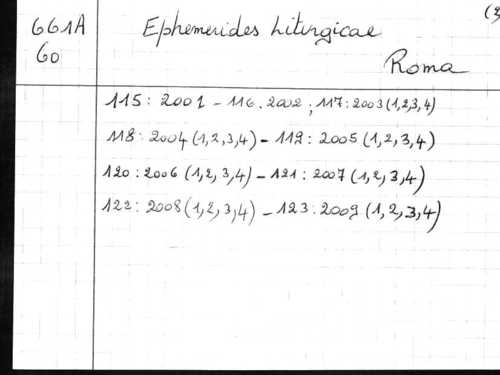 661A Ephemerides Liturgicae (3
60 Roma
115: 2001 - 116. 2002; 117: 2003 (1,2,3,4)
118: 2004 (1,2,3,4) - 119: 2005 (1,2,3,4)
120: 2006 (1,2,3,4) - 121: 2007 (1,2,3,4)
122: 2008 (1,2,3,4) - 123: 2009 (1,2,3,4)